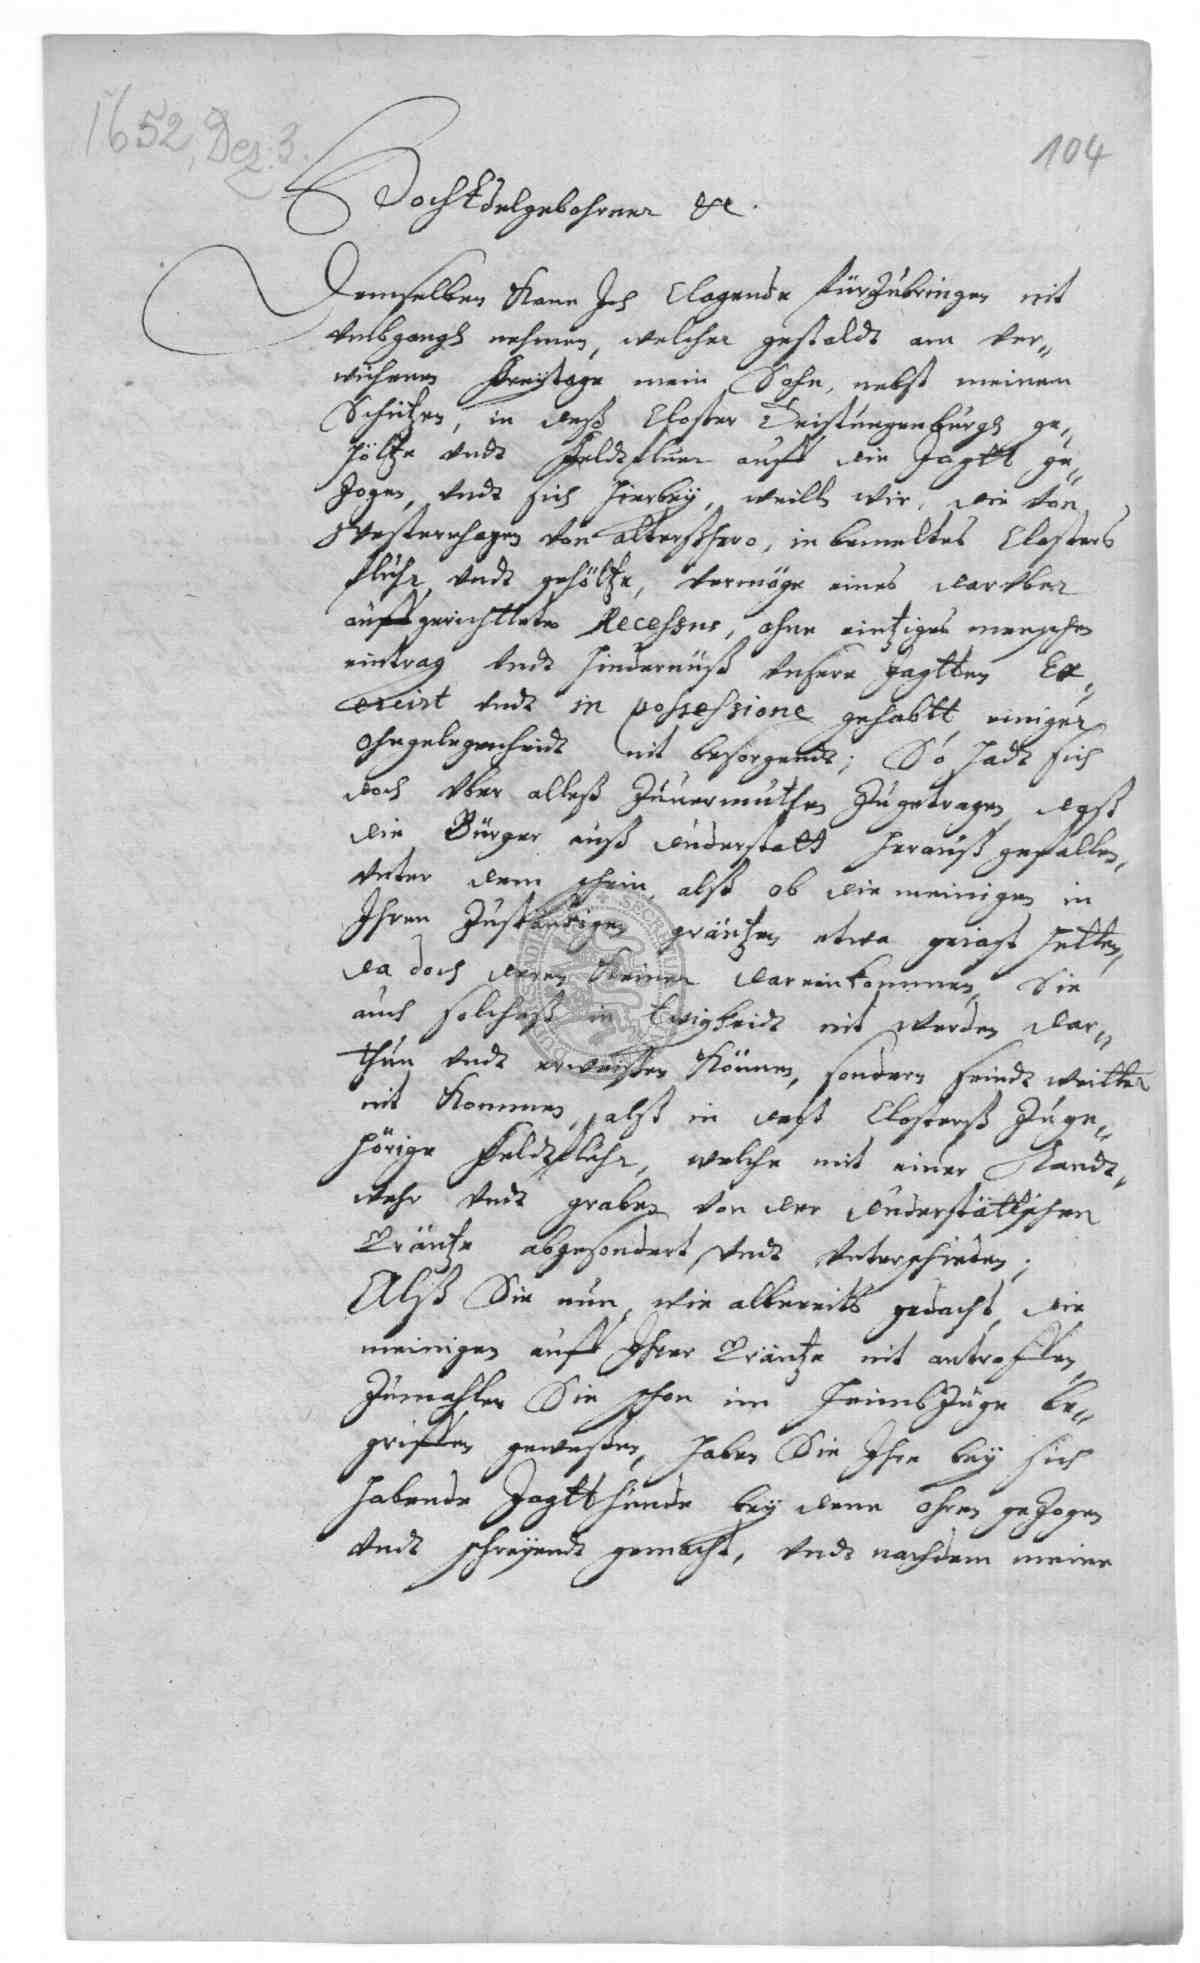 1652, Dez. 3.
104
HochEdelgebohrner &c.
Demselben kann Ich Clagende fürzubringen nit
vmbgangk nehmen, welcher gestaldt am ver-
wichenen Freytage mein Sohn, nebst meinem
Schützen, in deß Closter Teistungenburgk ge-
höltze vndt Feldtfluer auff die Jagtt ge-
zogen, vndt sich hierbey, weill wir, die von
Westernhagen von altersshero, in bemeltes Closters
fluhr vndt gehöltze, vermöge eines darüber
auffgerichtteten Recessus, ohne eintziges menschen
eintrag vndt hindernüß vnsere Jagtten Ex-
ercirt vndt in possessione gehabtt, einiger
ohngelegenheidt nit besorgende; So hadt sich
doch vber alleß Zuuermuthen Zugetragen, daß
die Bürger auß Duderstatt herauß gefallen,
vnter dem schein, alß ob die meinigen in
Ihren Zuständigen gräntzen etwa geiagt hetten,
da doch deren Keiner darein kommen, Sie
auch solcheß in Ewigkeidt nit werden dar-
thun vndt erweißen Können, sondern seindt weitter
nit Kommen, alß in deß Closterß Zuge-
hörige Feldtfluhr, welche mit einer Landt-
wehr vndt graben von der Duderstättschen
Gräntze abgesondert vndt vnterschieden;
Alß Sie nun, wie allbereits gedacht, die
meinigen auff Ihrer Gräntze nit antroffen,
Zumahlen Sie schon im heimbzuge be-
griffen geweßen, haben Sie Ihre bey sich
habende Jagtthunde bey denn ohren gezogen
vndt schreyendt gemacht, vndt nachdem meine